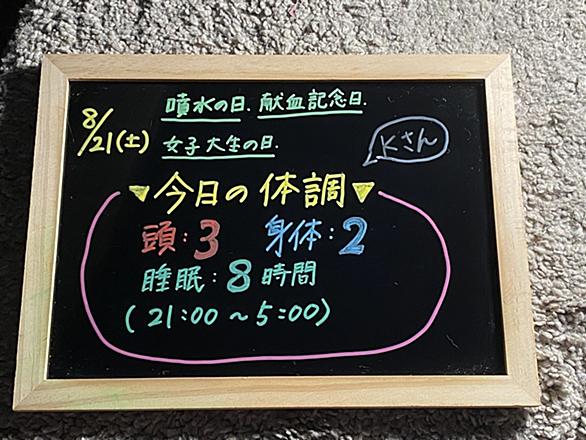 8/21(土)
噴水の日. 献血記念日.
女子大生の日.
Kさん
▼今日の体調▼
頭:3 身体:2
睡眠:8時間
(21:00〜5:00)